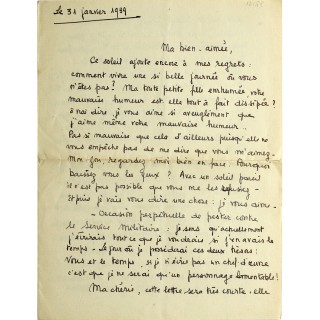 Le 31 janvier 1939
Ma bien-aimée,
Ce soleil ajoute encore à mes regrets:
comment vivre une si belle journée où vous
n'êtes pas? Ma toute petite fille enrhumée, votre
mauvaise humeur est-elle tout à fait dissipée?
à vrai dire, je vous aime si aveuglément que
j'aime même votre mauvaise humeur.
Pas si mauvaise que cela d'ailleurs puisqu'elle ne
vous empêche pas de me dire que vous m'aimez.
regardez moi bien en face. Pourquoi
baissez vous les yeux? Avec un soleil pareil
il n'est pas possible que vous me les refusiez.
Et puis je vais vous dire une chose: je vous aime.
- Occasion perpétuelle de pester contre
le Service Militaire: je sens qu'actuellement
j'écrirais tout ce que je voudrais si j'en avais le
temps. Le jour où je possèderai ces deux trésors:
Vous et le temps, si je n'écris pas un chef d'œuvre
c'est que je ne serai qu'un personnage lamentable!
Ma chérie, cette lettre sera très courte, elle